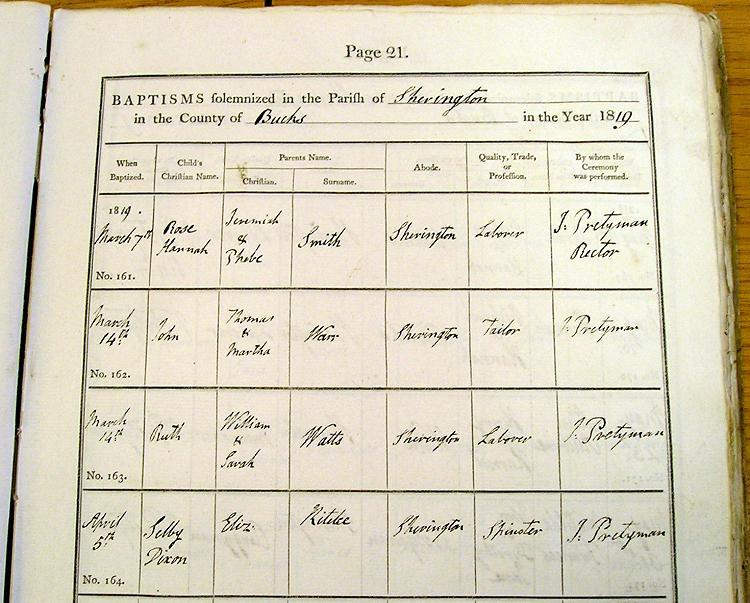 Page 21.
BAPTISMS solemnized in the Parish of Sherington
in the County of Bucks in the Year 1819
When Baptized.
Child's Christian Name.
Parents Name.
Christian.
Surname.
Abode.
Quality, Trade, or Profession.
By whom the Ceremony was performed.
1819.
March 7th
No. 161.
Rose Hannah
Jeremiah & Phebe
Smith
Sherington
Labourer
J. Pretyman Rector
March 14th
No. 162.
John
Thomas & Martha
Warr
Sherington
Tailor
J. Pretyman
March 14th
No. 163.
Ruth
William & Sarah
Watts
Sherington
Labourer
J. Pretyman
April 5th
No. 164.
Selby Dixon
Eliz.
Kitelee
Sherington
Spinster
J. Pretyman